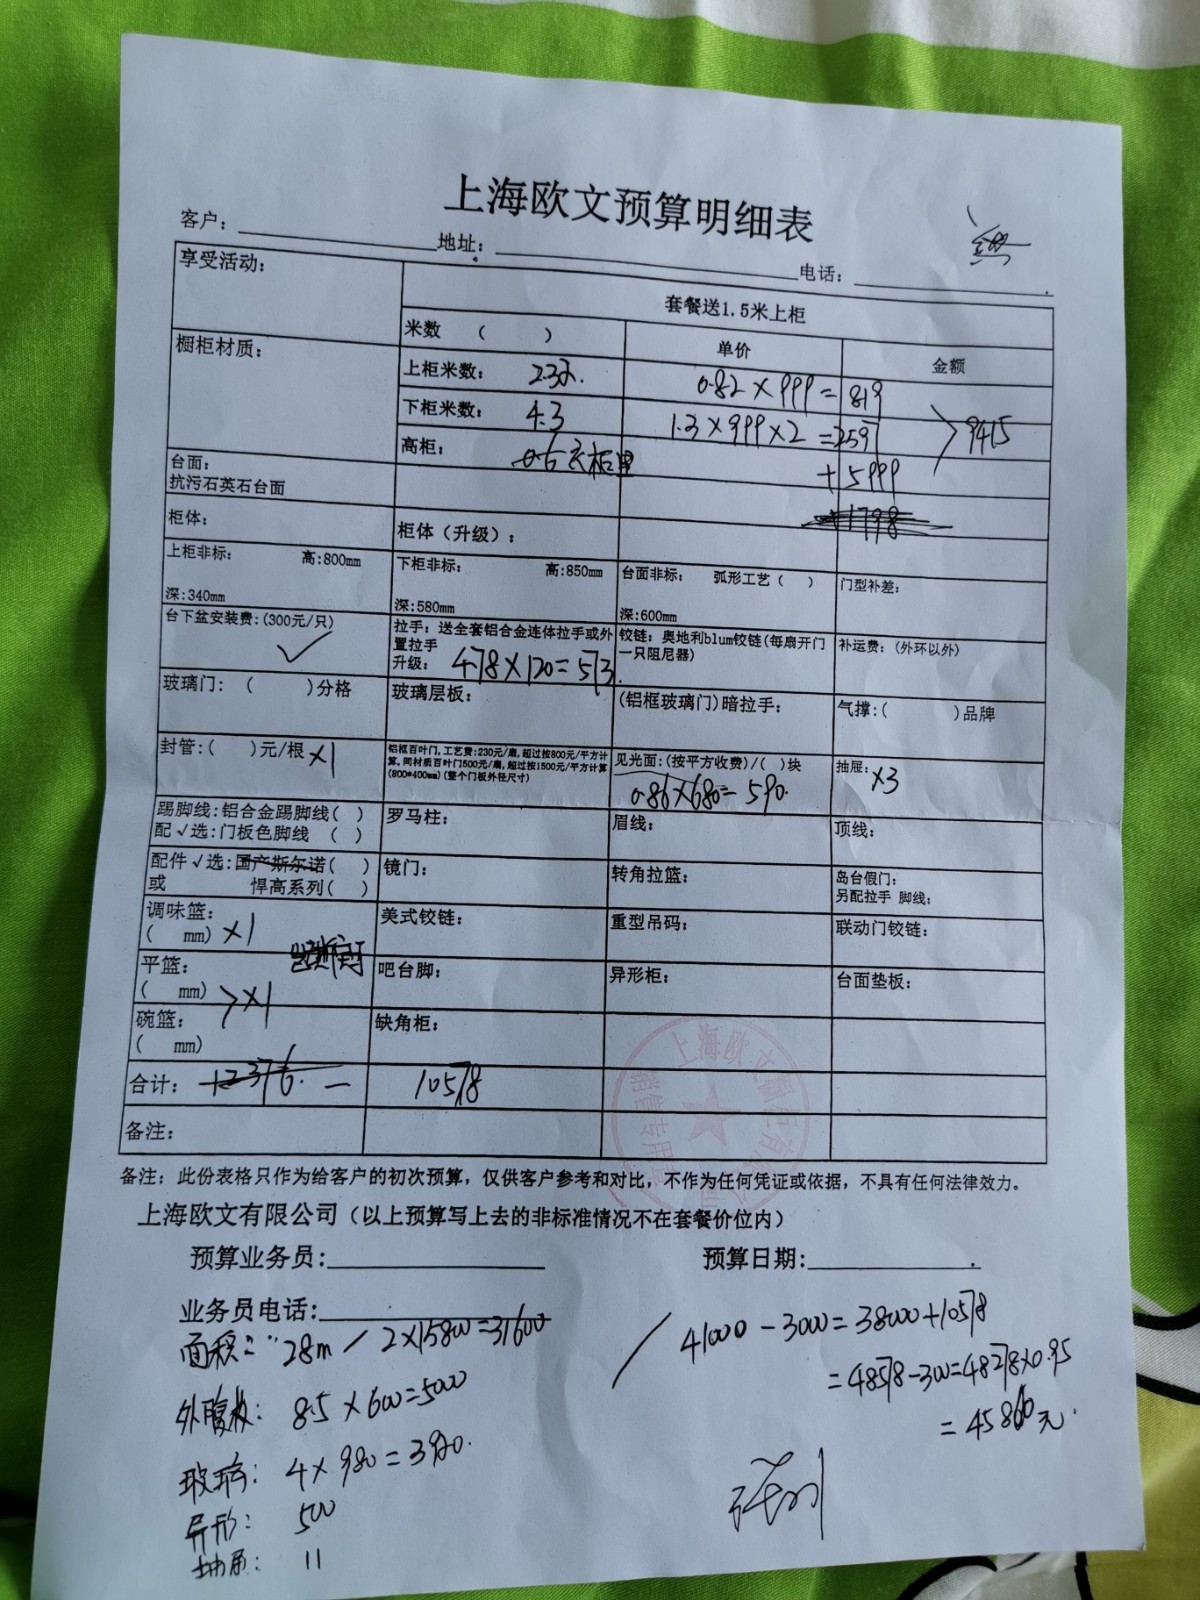 上海欧文预算明细表
客户： 地址： 电话：
享受活动：
套餐送1.5米上柜
米数 （ ） 单价 金额
橱柜材质：
上柜米数： 2.32. 0.82×999= 819
下柜米数： 4.3 1.3×999×2 =2597 9415
高柜： 0.6 +5999
台面：
抗污石英石台面
1798
柜体： 柜体（升级）：
上柜非标： 高:800mm 下柜非标： 高:850mm 台面非标： 弧形工艺（ ） 门型补差：
深:340mm 深:580mm 深:600mm
台下盆安装费:(300元/只) ✓ 拉手：送全套铝合金连体拉手或外置拉手 铰链：奥地利blum铰链(每扇开门一只阻尼器) 补运费：(外环以外)
升级： 4.78×120=573.
玻璃门：（ ）分格 玻璃层板： (铝框玻璃门)暗拉手： 气撑:（ ）品牌
封管:（ ）元/根 ×1 铝框百叶门,工艺费:230元/扇,超过按800元/平方计算,同材质百叶门500元/扇,超过按1500元/平方计算(800*400mm)(整个门板外径尺寸) 见光面:(按平方收费)/（ ）块 抽屉: ×3
0.86×680=590.
踢脚线:铝合金踢脚线( ) 罗马柱： 眉线： 顶线：
配√选:门板色脚线 ( )
配件√选:国产斯尔诺( ) 镜门： 转角拉篮： 岛台假门：
或 悍高系列( ) 另配拉手 脚线：
调味篮： 美式铰链： 重型吊码： 联动门铰链：
( mm) ×1
平篮： 吧台脚： 异形柜： 台面垫板：
( mm) ×1
碗篮： 缺角柜：
( mm)
合计： 12376. — 10578
备注：
上海欧文 有限公司
销售专用章
备注：此份表格只作为给客户的初次预算，仅供客户参考和对比，不作为任何凭证或依据，不具有任何法律效力。
上海欧文有限公司（以上预算写上去的非标准情况不在套餐价位内）
预算业务员： 预算日期：
业务员电话：
面积： 28m / 2×15800=31600
外腹板： 8.5×600=5000
玻璃： 4×980=3920.
异形： 500
抽屉： 11
41000-3000=38000+10578
=48578-300=48278×0.95
=45860元.